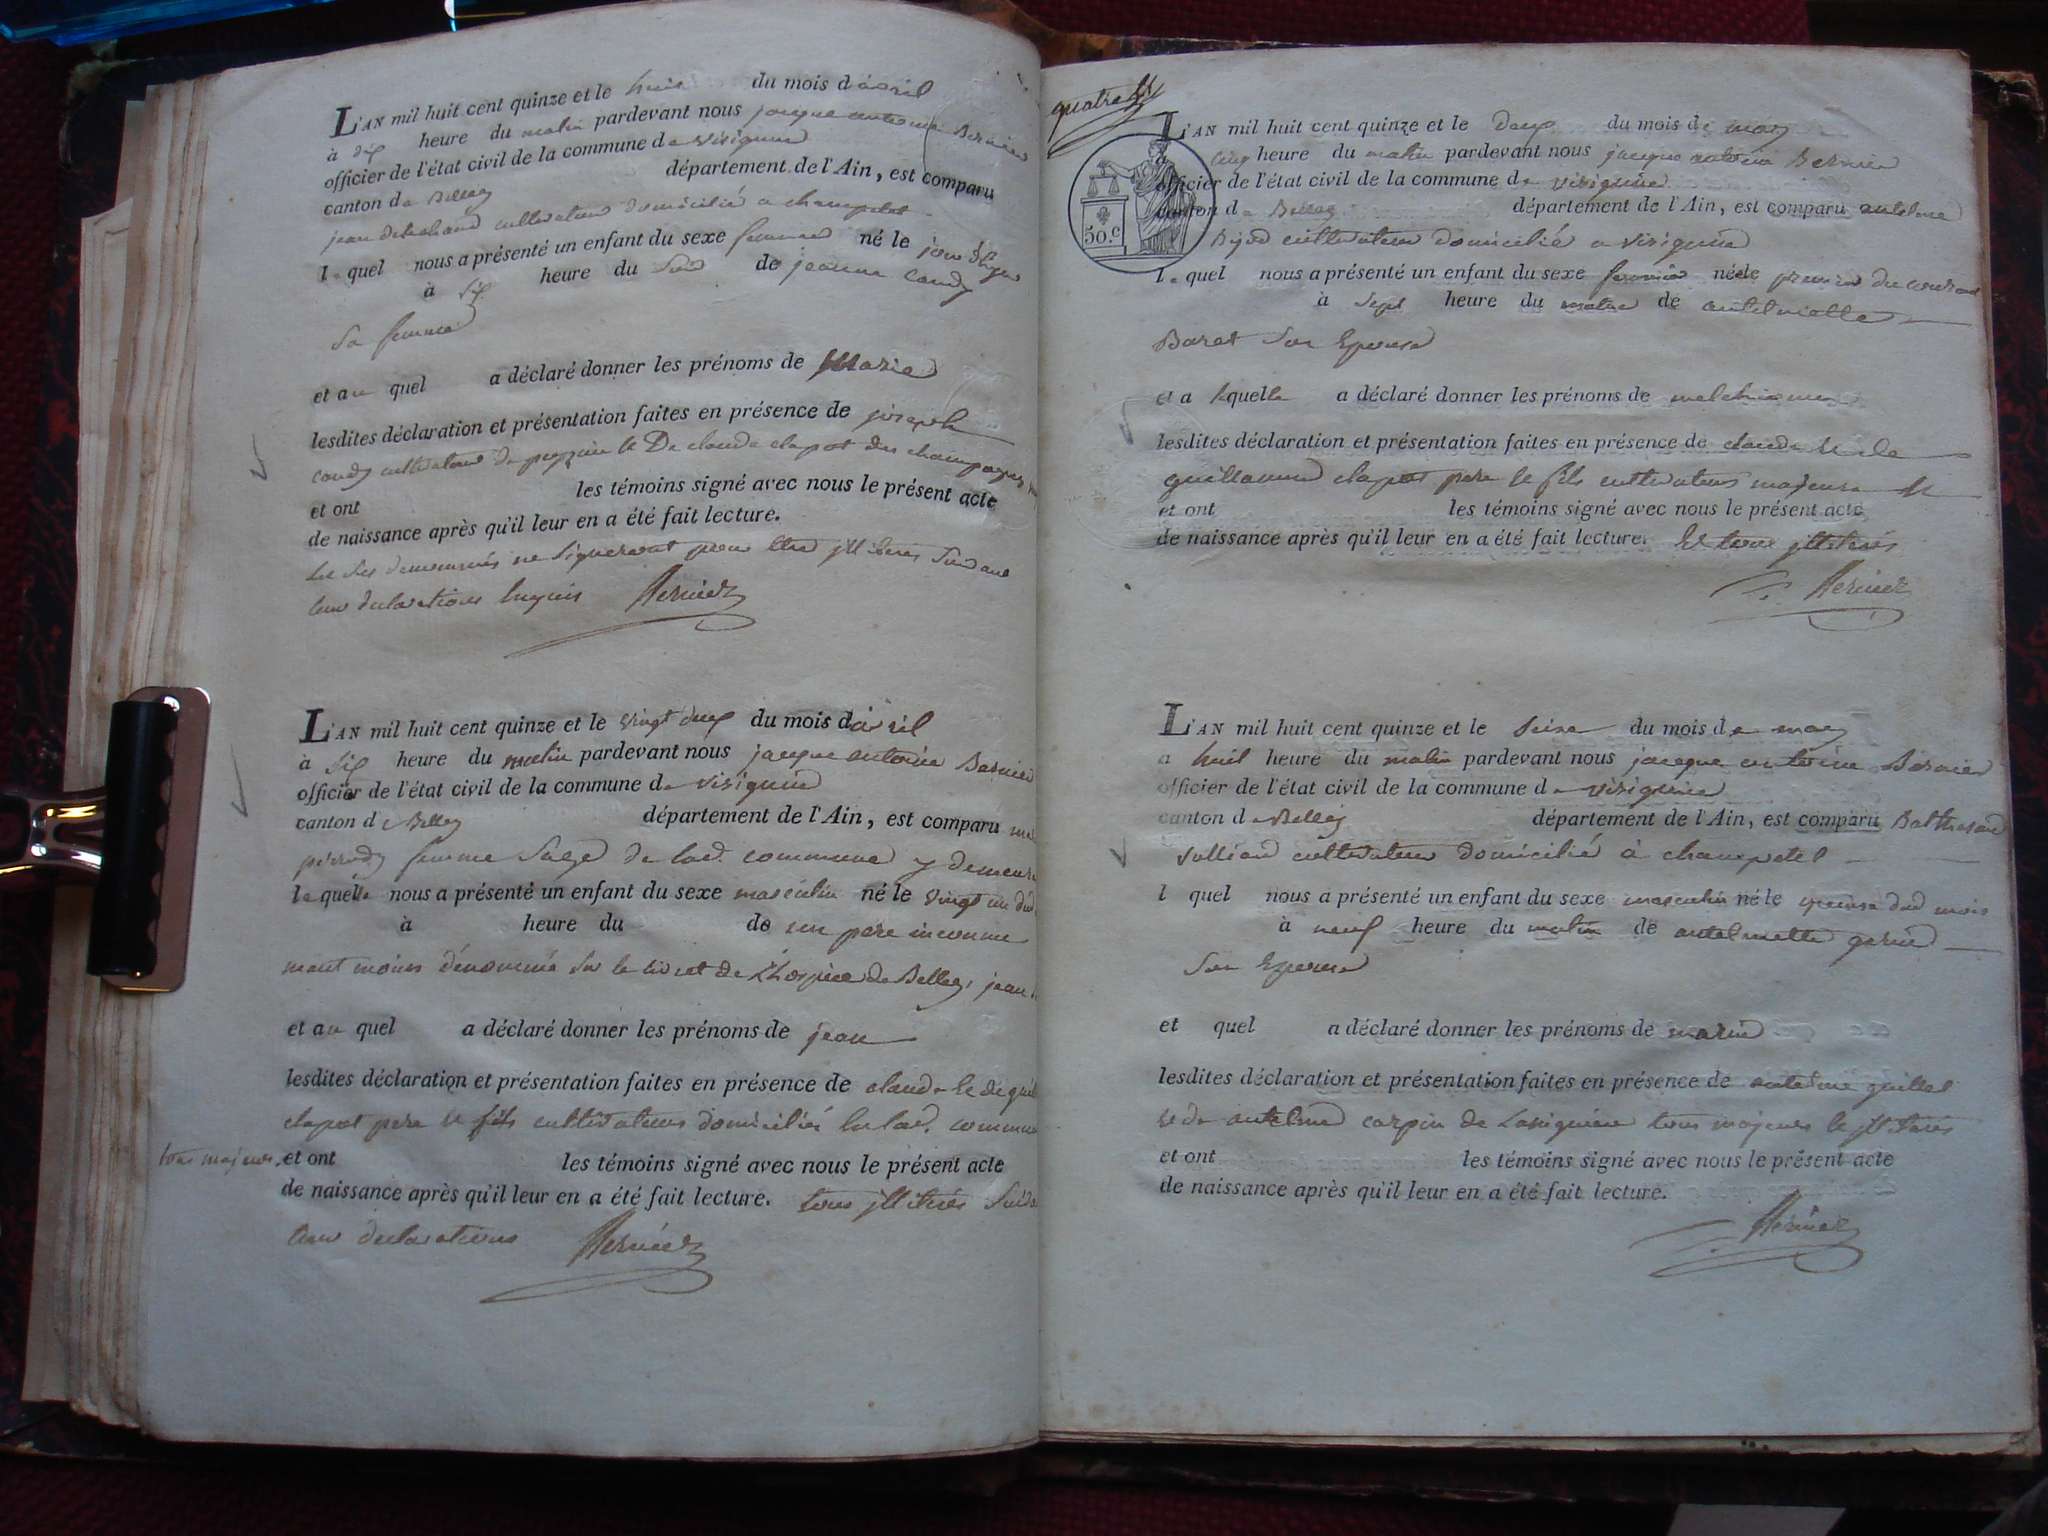 L'AN mil huit cent quinze et le huit du mois d'avril
à dix heure du matin pardevant nous jacque antoine Bernier
officier de l'état civil de la commune de virignin
canton de Belley département de l'Ain, est comparu
jean cultivateur domicilié a champtel
lequel nous a présenté un enfant du sexe né le jour d'hyer
à six heure du soir de jeanne
sa femme
et au quel a déclaré donner les prénoms de Marie
lesdites déclaration et présentation faites en présence de joseph
cultivateur de et De claude clapot des champagnes
et ont les témoins signé avec nous le présent acte
de naissance après qu'il leur en a été fait lecture.
ne signeront pour être illiterés suivant
leur declarations Bernier
L'AN mil huit cent quinze et le vingt deux du mois d'avril
à six heure du matin pardevant nous jacque antoine Bernier
officier de l'état civil de la commune de virignin
canton de Belley département de l'Ain, est comparu
femme sage de lad. commune y demeur
laquelle nous a présenté un enfant du sexe masculin né le vingt un dud
à heure du de son pere inconnu
moins dénommé sur le livret de L'hospice de Belley, jean
et au quel a déclaré donner les prénoms de jean
lesdites déclaration et présentation faites en présence de claude et de
clapot pere et fils cultivateurs domiciliés en lad. commune
tous majeurs, et ont les témoins signé avec nous le présent acte
de naissance après qu'il leur en a été fait lecture. tous illiterés
leur declarations Bernier
quatre
50.c
L'AN mil huit cent quinze et le Deux du mois de may
à cinq heure du matin pardevant nous jacque antoine Bernier
officier de l'état civil de la commune de virignin
canton de Belley département de l'Ain, est comparu antelme
cultivateur domicilié a virignin
lequel nous a présenté un enfant du sexe feminin née le premier du courant
à sept heure du matin de antelmette
Baret son Epouse
et a laquelle a déclaré donner les prénoms de
lesdites déclaration et présentation faites en présence de claude et de
guillaume clapot pere et fils cultivateurs majeurs
et ont les témoins signé avec nous le présent acte
de naissance après qu'il leur en a été fait lecture. Et tous illiterés
Bernier
L'AN mil huit cent quinze et le seize du mois de may
a huit heure du matin pardevant nous jacque antoine Bernier
officier de l'état civil de la commune de virignin
canton de Belley département de l'Ain, est comparu Balthazard
cultivateur domicilié à champtel
l quel nous a présenté un enfant du sexe masculin né le quinze dud mois
à neuf heure du matin de antelmette
son Epouse
et quel a déclaré donner les prénoms de marin
lesdites déclaration et présentation faites en présence de antelme
et de antelme carpin de tous majeurs et illiterés
et ont les témoins signé avec nous le présent acte
de naissance après qu'il leur en a été fait lecture.
Bernier